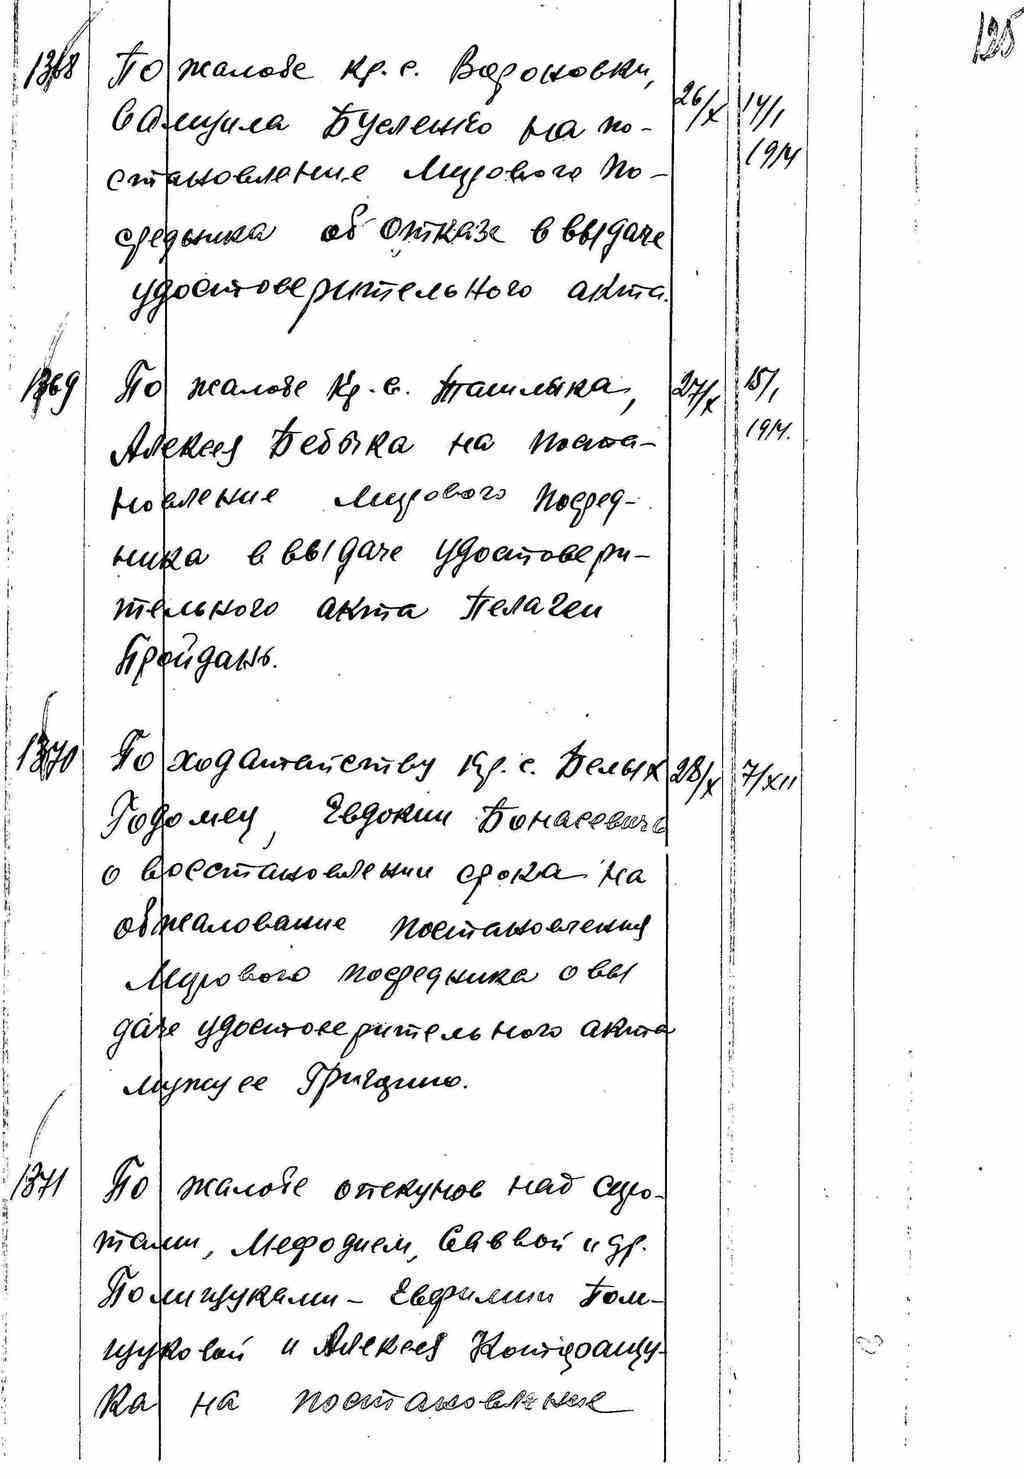 125
1368 По жалобе кр. с. Вороновки, 26/X 14/I
Самуила Бусленко на по- 1914
становление Мирового По-
средника об отказе в выдаче
удостоверительного акта.
1369 По жалобе Кр. с. Ташлыка, 27/X 15/I
Алексея Бебыка на поста- 1914.
новление Мирового Посред-
ника в выдаче удостовери-
тельного акта Пелагеи
Пройдань.
1370 По ходатайству кр. с. Белых 28/X 7/XII
Евдокии Бонасевичь
о восстановлении срока на
обжалование постановления
Мирового посредника о вы
даче удостоверительного акта
мужу ее Григорию.
1371 По жалобе опекунов над сиро-
тами, Мефодием, Саввой и др.
Полищуками - Евфимии Поли-
щуковой и Алексея
ка на постановление